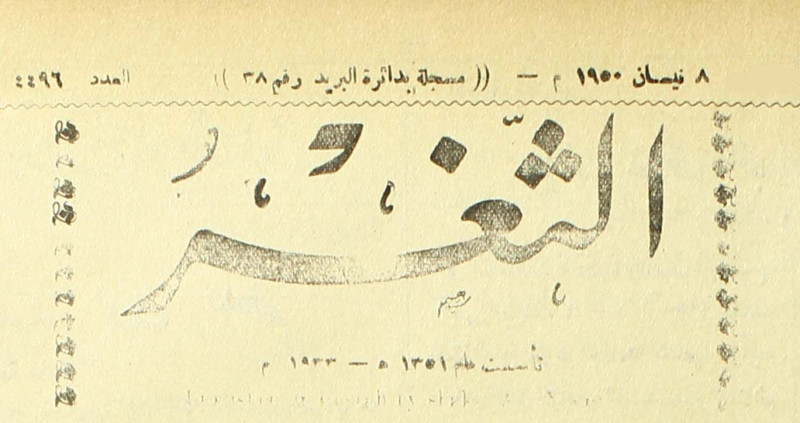 ٨ نيسان ١٩٥٠ م — (( مسجلة بدائرة البريد رقم ٣٨ )) العدد ٤٤٩٦
الثغر
تأسست عام ١٣٥١ ه — ١٩٣٣ م